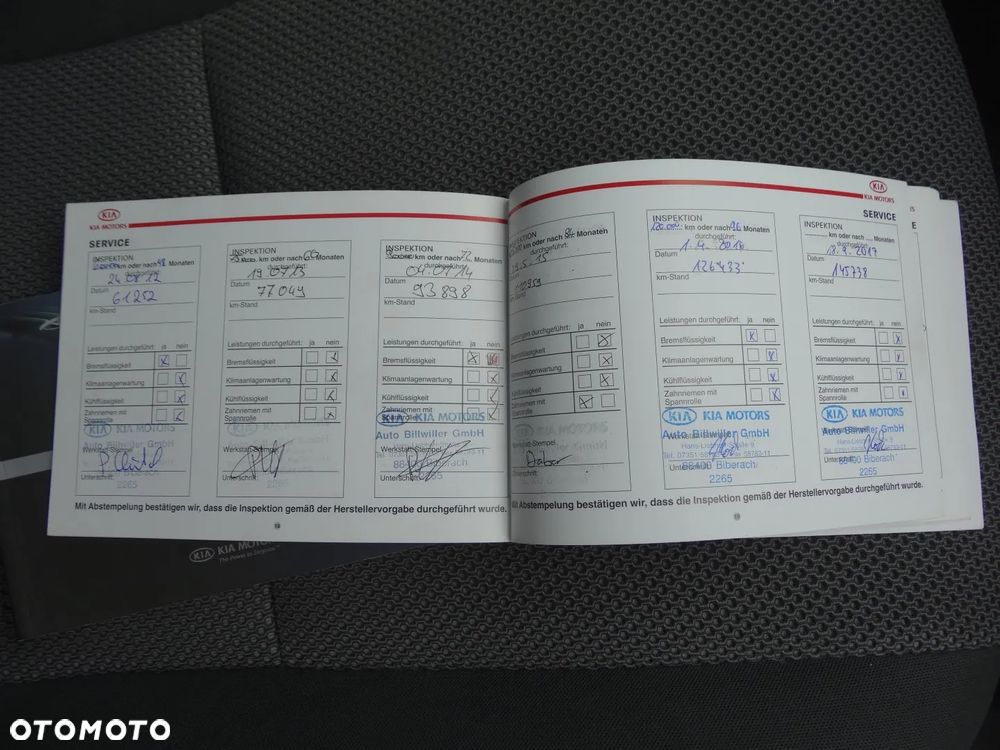 KIA
KIA MOTORS
SERVICE
km oder nach 48 Monaten
durchgeführt:
24.08.12
Datum
61252
km-Stand
Leistungen durchgeführt: ja nein
Bremsflüssigkeit
Klimaanlagenwartung
Kühlflüssigkeit
Zahnriemen mit
Spannrolle
KIA MOTORS
Auto Billwiller GmbH
Werkstatt-Stempel
Unterschrift
2265
INSPEKTION
km oder nach 60 Monaten
durchgeführt:
Datum
77049
km-Stand
Leistungen durchgeführt: ja nein
Bremsflüssigkeit
Klimaanlagenwartung
Kühlflüssigkeit
Zahnriemen mit
Spannrolle
Werkstatt-Stempel
Unterschrift
INSPEKTION
km oder nach 72 Monaten
durchgeführt:
04.07.14
Datum
93898
km-Stand
Leistungen durchgeführt: ja nein
Bremsflüssigkeit
Klimaanlagenwartung
Kühlflüssigkeit
Zahnriemen mit
Spannrolle
KIA KIA MOTORS
Auto Billwiller GmbH
Werkstatt-Stempel
88400 Biberach
Unterschrift
2265
Mit Abstempelung bestätigen wir, dass die Inspektion gemäß der Herstellervorgabe durchgeführt wurde.
18
KIA
KIA MOTORS
SERVICE
INSPEKTION
km oder nach 84 Monaten
durchgeführt:
Datum
km-Stand
Leistungen durchgeführt: ja nein
Bremsflüssigkeit
Klimaanlagenwartung
Kühlflüssigkeit
Zahnriemen mit
Spannrolle
Werkstatt-Stempel
Unterschrift
INSPEKTION
120.000 km oder nach 96 Monaten
durchgeführt:
Datum
126433
km-Stand
Leistungen durchgeführt: ja nein
Bremsflüssigkeit
Klimaanlagenwartung
Kühlflüssigkeit
Zahnriemen mit
Spannrolle
KIA KIA MOTORS
Auto Billwiller GmbH
88400 Biberach
2265
INSPEKTION
km oder nach .... Monaten
durchgeführt:
Datum
145738
km-Stand
Leistungen durchgeführt: ja nein
Bremsflüssigkeit
Klimaanlagenwartung
Kühlflüssigkeit
Zahnriemen mit
Spannrolle
KIA KIA MOTORS
Auto Billwiller GmbH
88400 Biberach
2265
Mit Abstempelung bestätigen wir, dass die Inspektion gemäß der Herstellervorgabe durchgeführt wurde.
19
KIA KIA MOTORS
The Power to Surprise
OTOMOTO